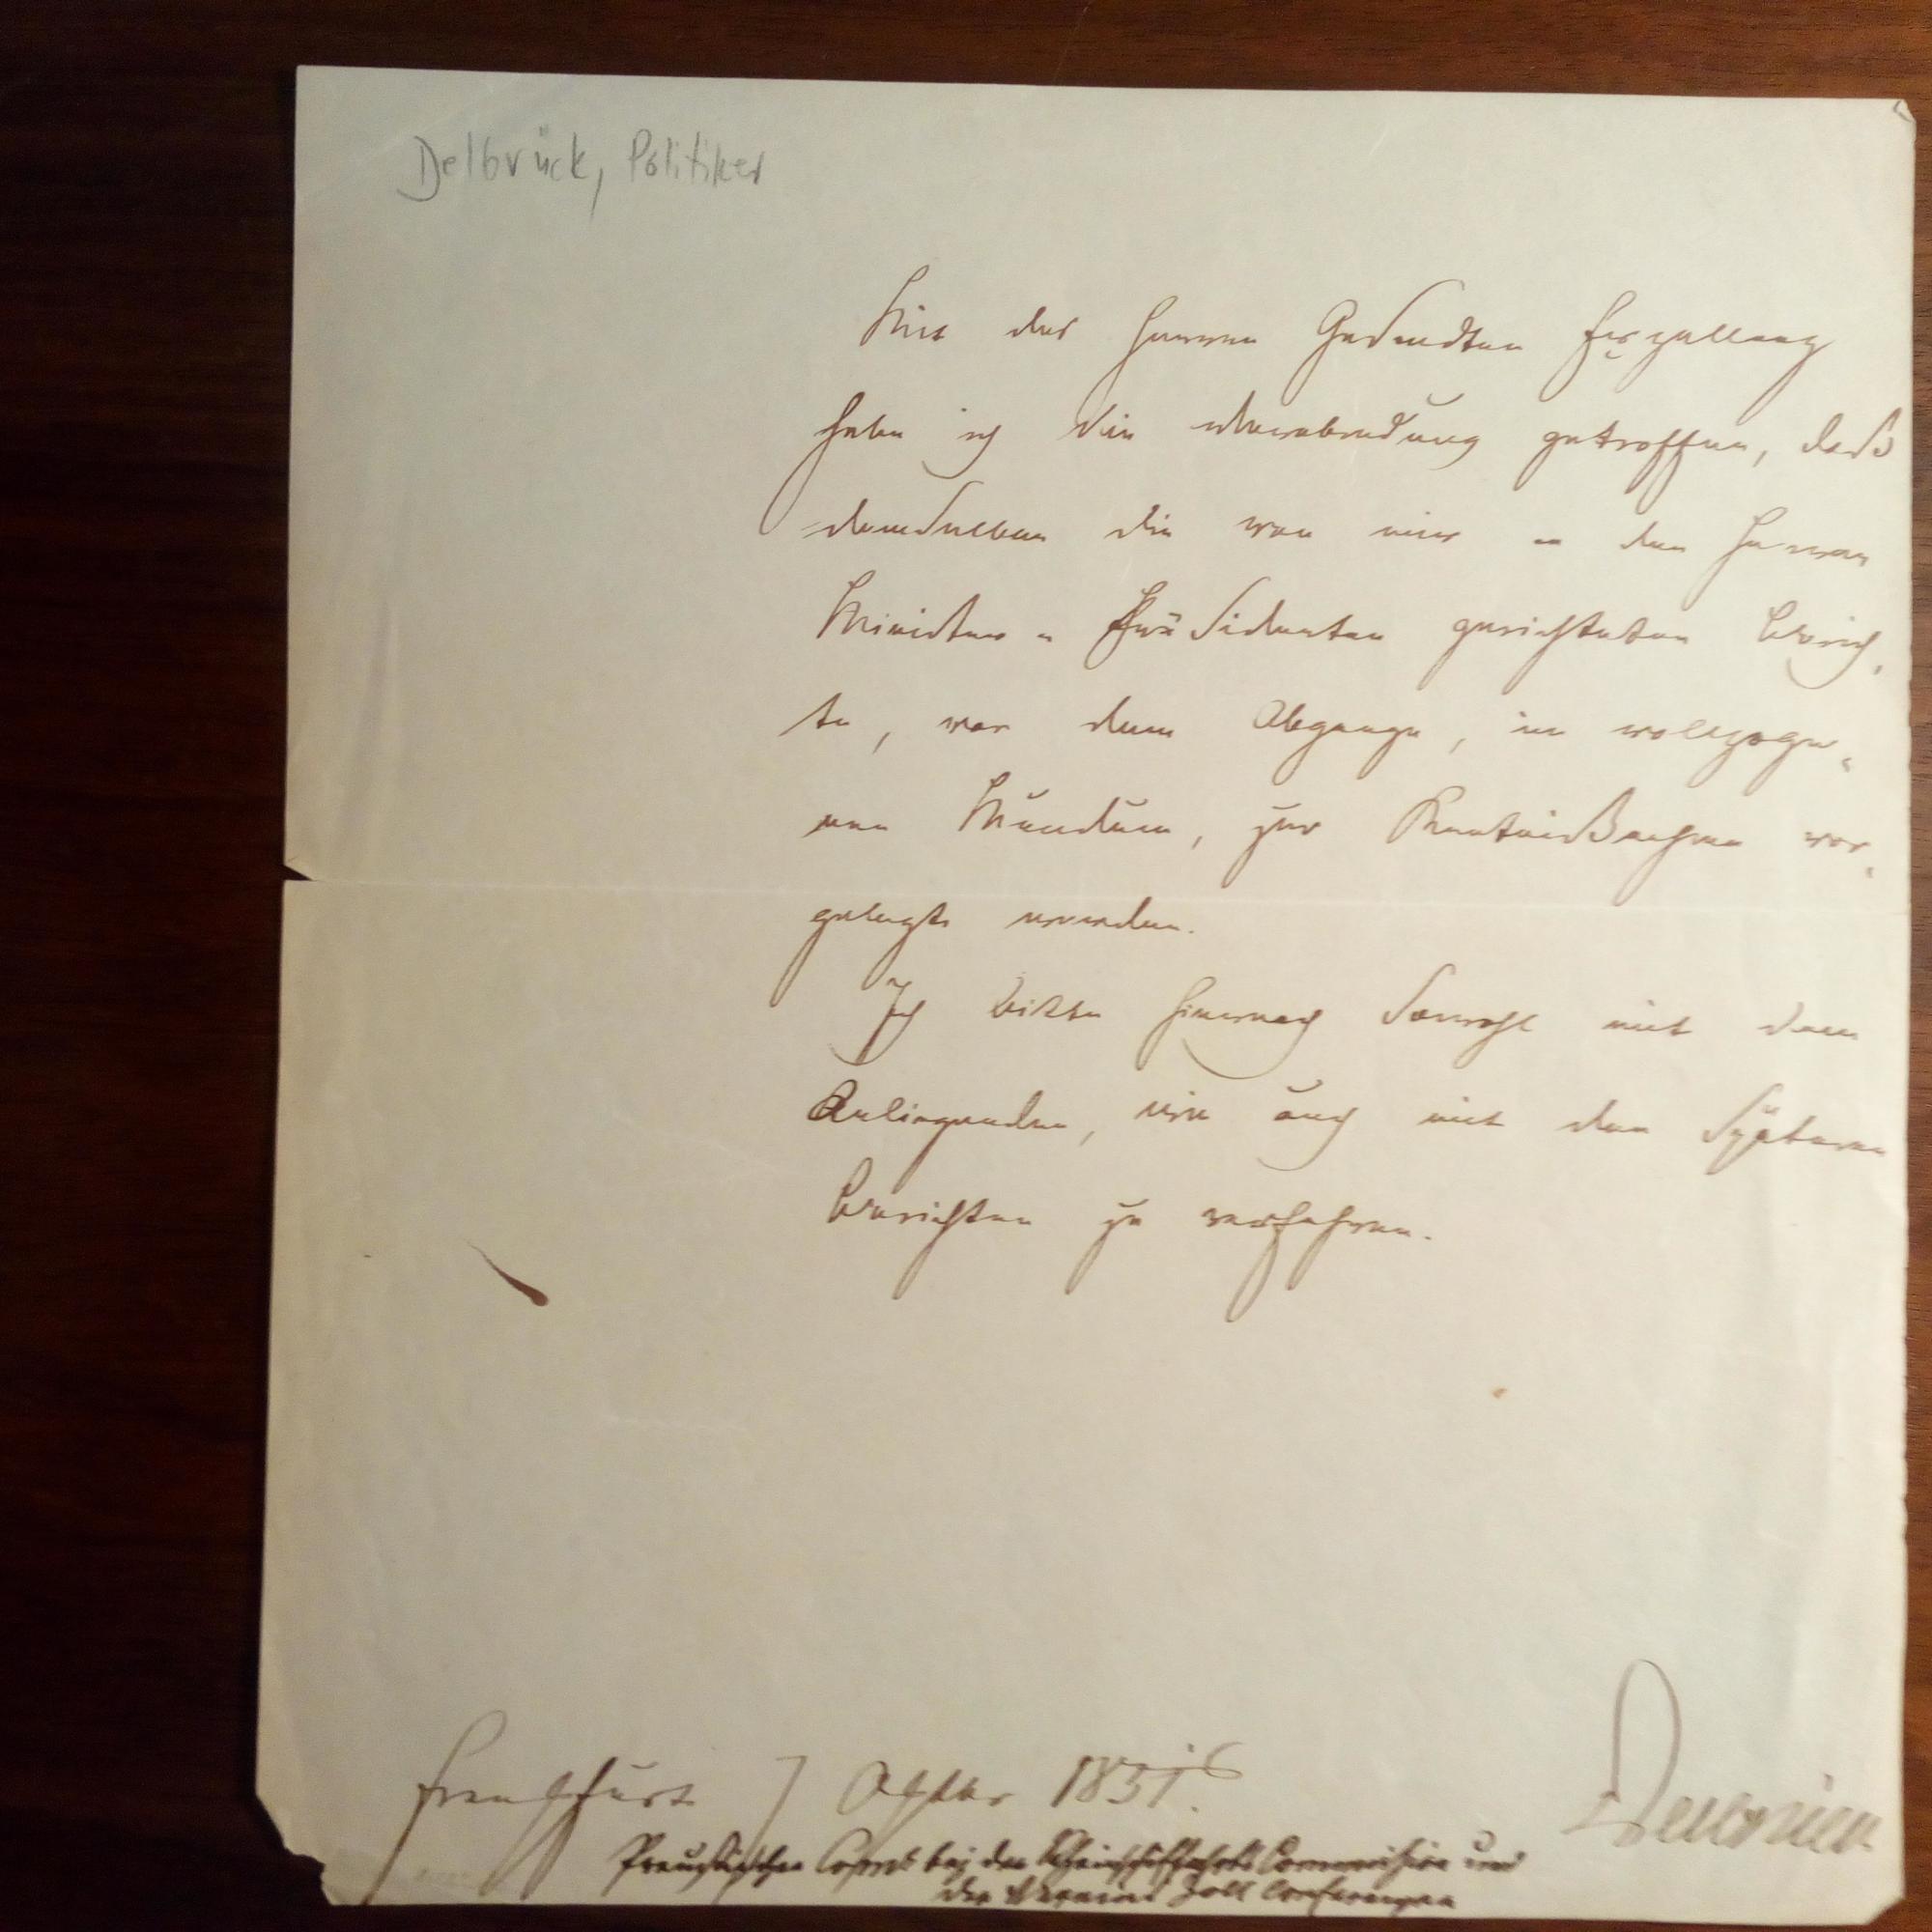 Delbrück, Politiker
Mit des Herren Gesandten Exzellenz
habe ich die Verabredung getroffen, daß
demselben die von mir an den Herren
Minister-Präsidenten gerichteten Berich-
te, vor dem Abgange, in vollzoge-
nen Mundum, zur Kentnißnahme vor-
gelegt werden.
Ich bitte hiernach sowohl mit dem
Anliegenden, wie auch mit den späteren
Berichten zu verfahren.
Frankfurt 7 1851
Preußischer bei der Rheinschiffahrts Commission und
der Vereins Zoll Conferenzen